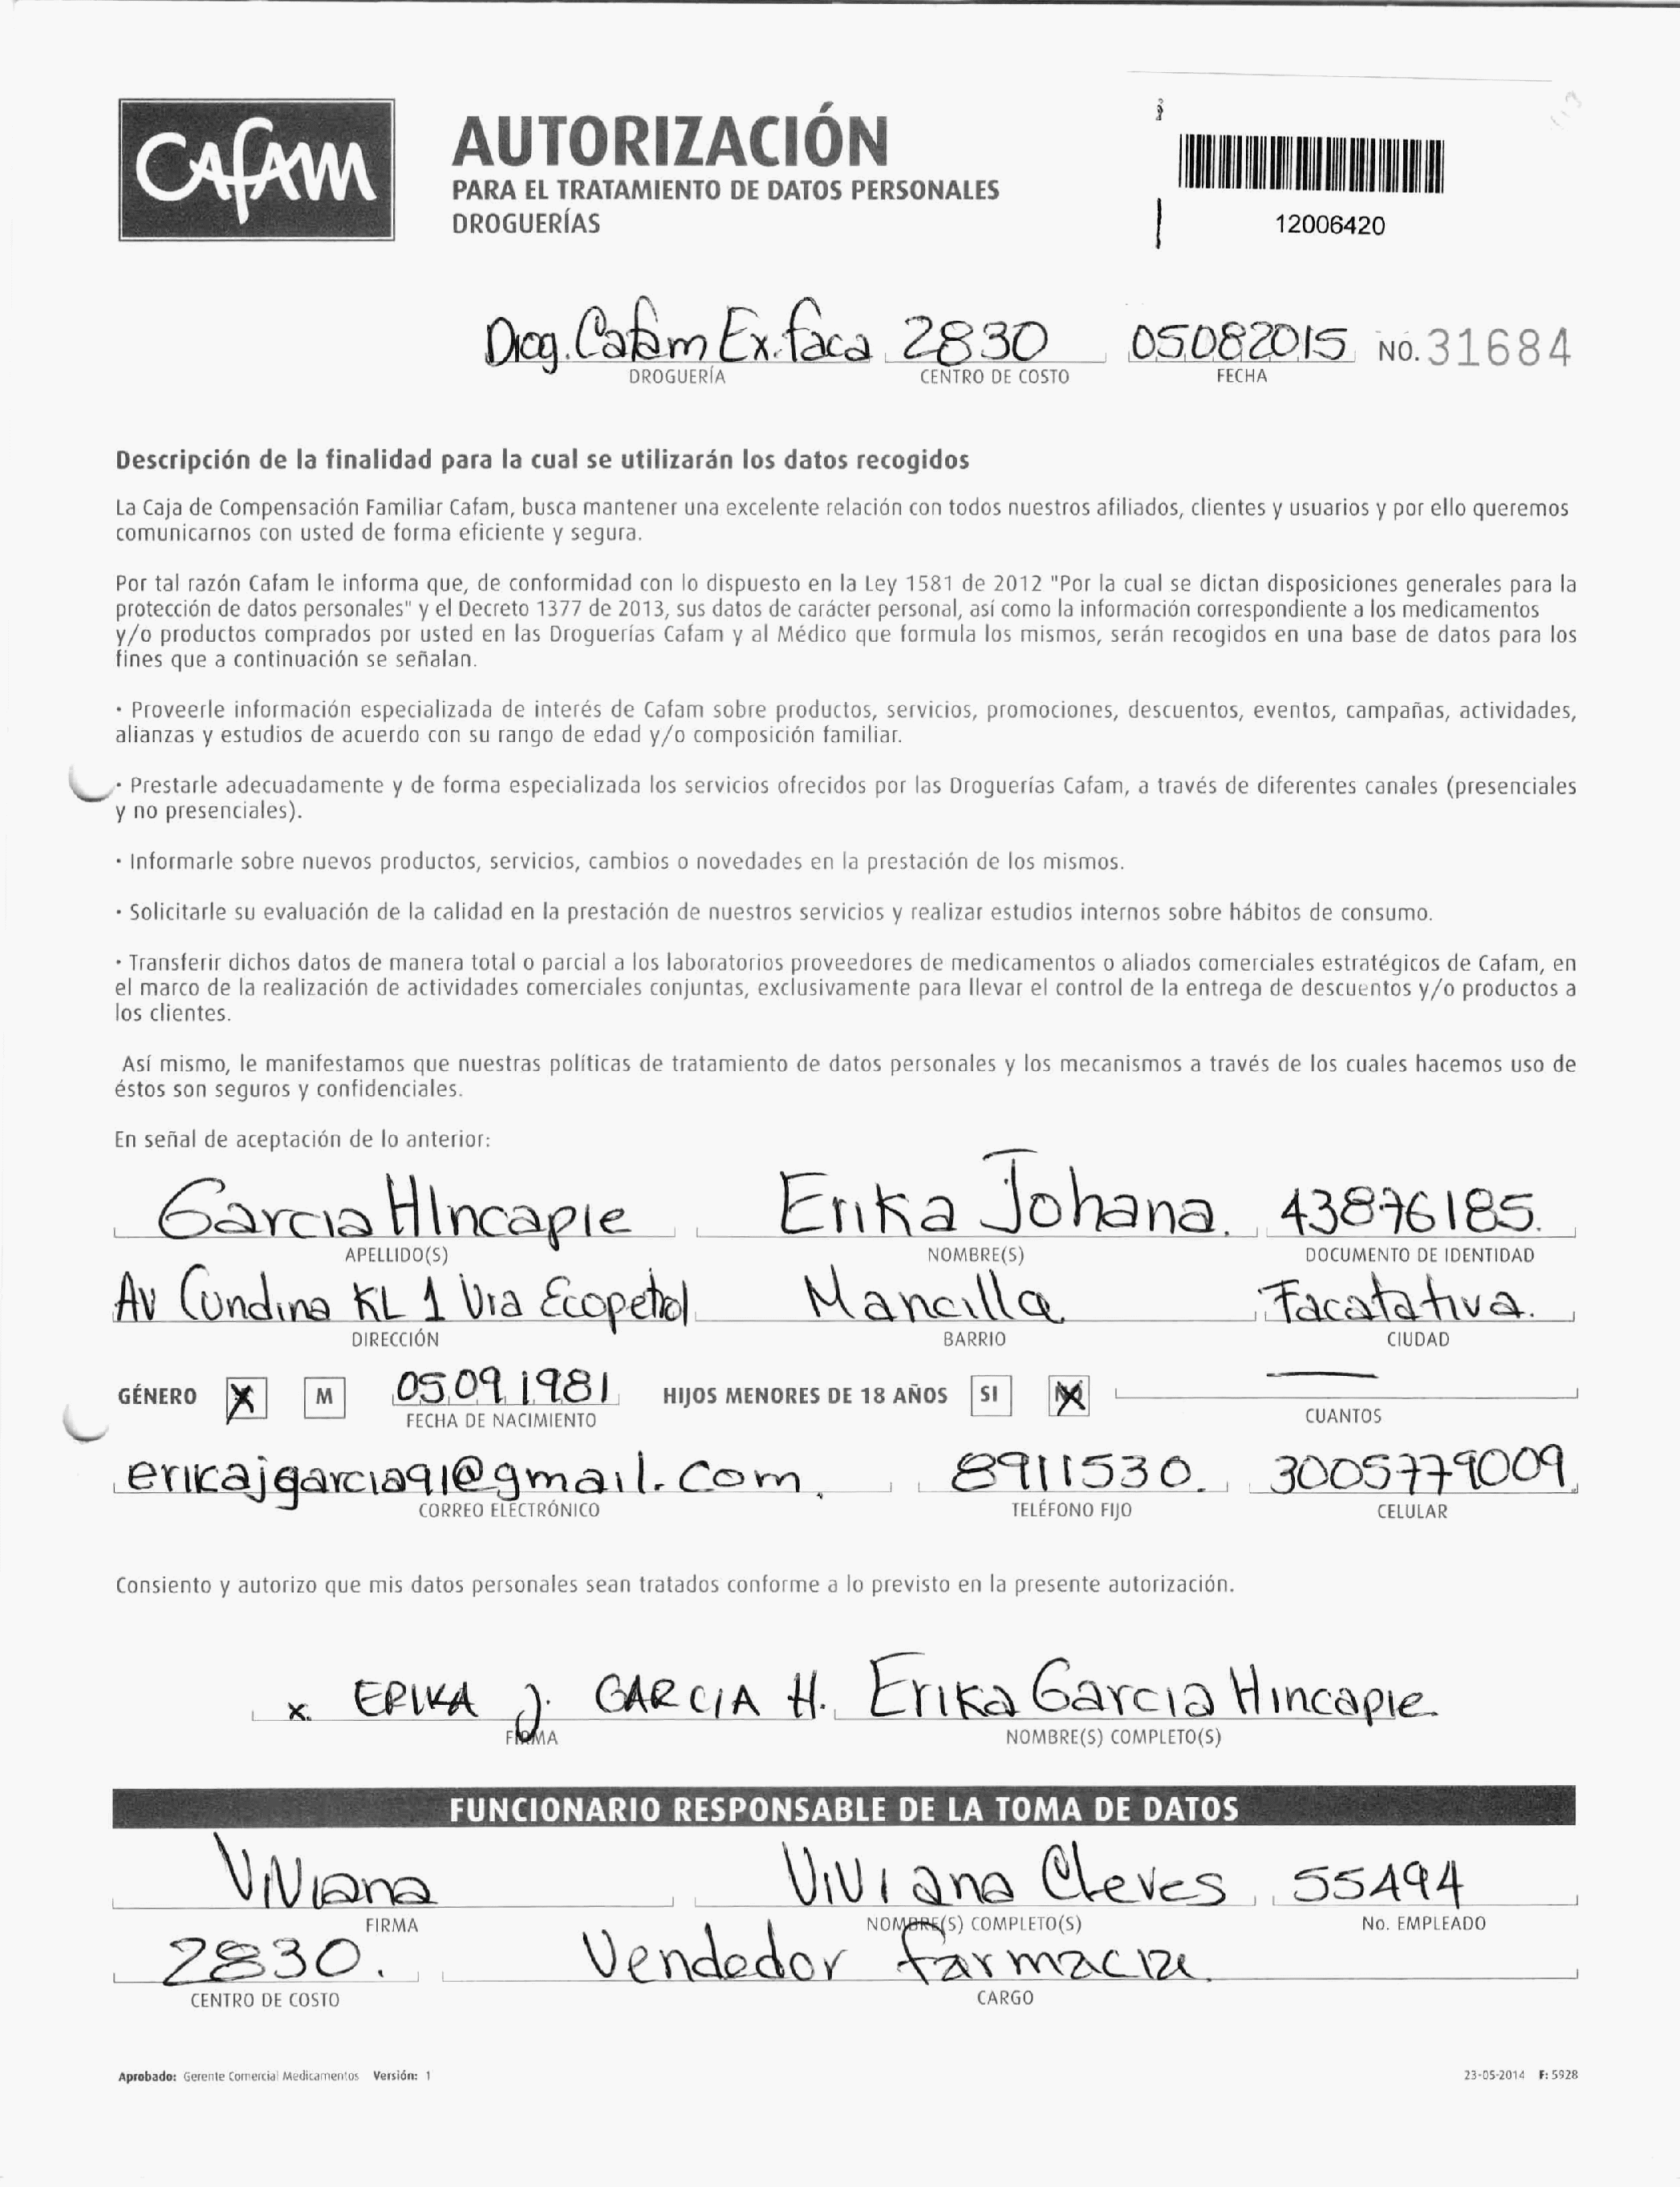 CAFAM
AUTORIZACIÓN
PARA EL TRATAMIENTO DE DATOS PERSONALES
DROGUERÍAS
12006420
Drog. Cafam Ex. faca 2830 05082015 NO. 31684
DROGUERÍA CENTRO DE COSTO FECHA
Descripción de la finalidad para la cual se utilizarán los datos recogidos
La Caja de Compensación Familiar Cafam, busca mantener una excelente relación con todos nuestros afiliados, clientes y usuarios y por ello queremos
comunicarnos con usted de forma eficiente y segura.
Por tal razón Cafam le informa que, de conformidad con lo dispuesto en la Ley 1581 de 2012 "Por la cual se dictan disposiciones generales para la
protección de datos personales" y el Decreto 1377 de 2013, sus datos de carácter personal, así como la información correspondiente a los medicamentos
y/o productos comprados por usted en las Droguerías Cafam y al Médico que formula los mismos, serán recogidos en una base de datos para los
fines que a continuación se señalan.
· Proveerle información especializada de interés de Cafam sobre productos, servicios, promociones, descuentos, eventos, campañas, actividades,
alianzas y estudios de acuerdo con su rango de edad y/o composición familiar.
· Prestarle adecuadamente y de forma especializada los servicios ofrecidos por las Droguerías Cafam, a través de diferentes canales (presenciales
y no presenciales).
· Informarle sobre nuevos productos, servicios, cambios o novedades en la prestación de los mismos.
· Solicitarle su evaluación de la calidad en la prestación de nuestros servicios y realizar estudios internos sobre hábitos de consumo.
· Transferir dichos datos de manera total o parcial a los laboratorios proveedores de medicamentos o aliados comerciales estratégicos de Cafam, en
el marco de la realización de actividades comerciales conjuntas, exclusivamente para llevar el control de la entrega de descuentos y/o productos a
los clientes.
Así mismo, le manifestamos que nuestras políticas de tratamiento de datos personales y los mecanismos a través de los cuales hacemos uso de
éstos son seguros y confidenciales.
En señal de aceptación de lo anterior:
Garcia HIncapie Erika Johana. 43876185.
APELLIDO(S) NOMBRE(S) DOCUMENTO DE IDENTIDAD
Av Cundina KL 1 Via Ecopetrol Mancilla Facatativa.
DIRECCIÓN BARRIO CIUDAD
GÉNERO X M 05091981 HIJOS MENORES DE 18 AÑOS SI X —
FECHA DE NACIMIENTO CUANTOS
erikajgarcia91@gmail.com. 8911530. 3005779009
CORREO ELECTRÓNICO TELÉFONO FIJO CELULAR
Consiento y autorizo que mis datos personales sean tratados conforme a lo previsto en la presente autorización.
x. ERIKA J. GARCIA H. Erika Garcia Hincapie.
FIRMA NOMBRE(S) COMPLETO(S)
FUNCIONARIO RESPONSABLE DE LA TOMA DE DATOS
Viviana Viviana Cleves 55494
FIRMA NOMBRE(S) COMPLETO(S) No. EMPLEADO
2830. Vendedor farmacia
CENTRO DE COSTO CARGO
Aprobado: Gerente Comercial Medicamentos Versión: 1 23-05-2014 F: 5928